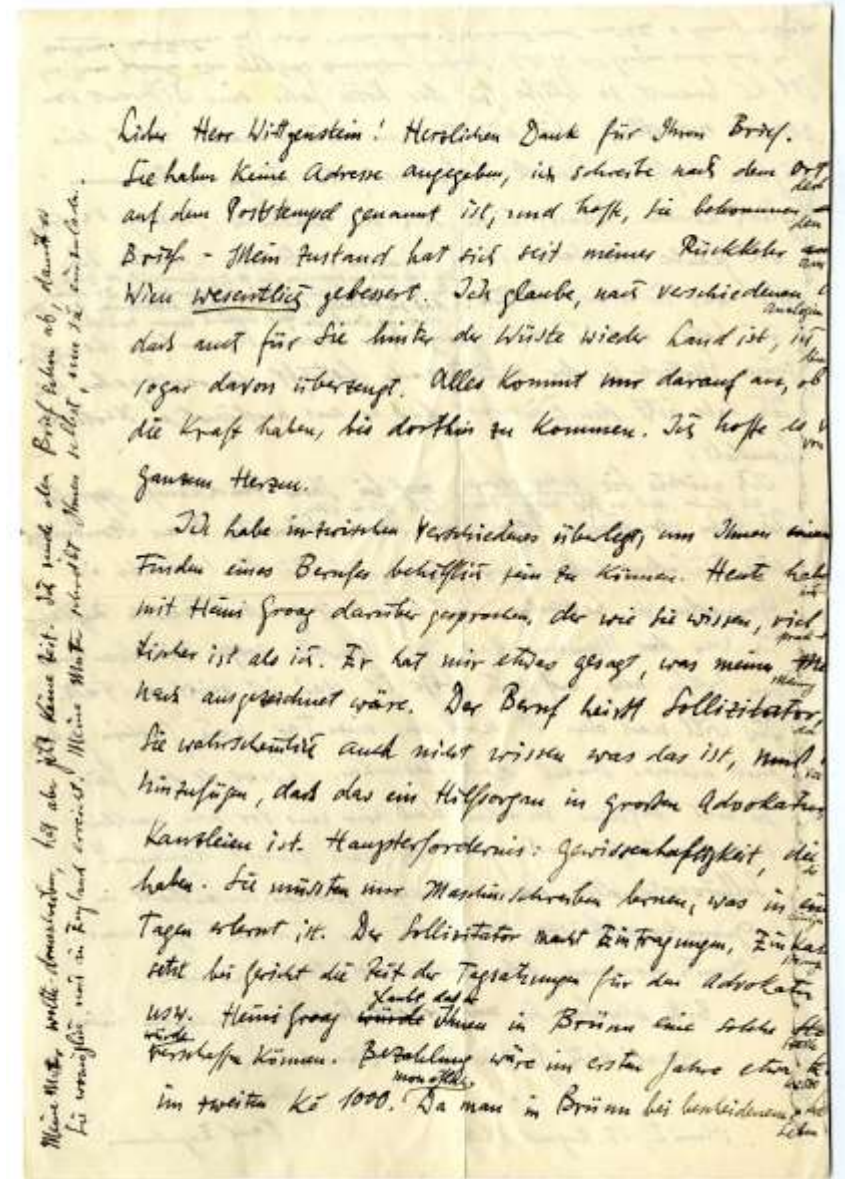 Lieber Herr Wittgenstein! Herzlichen Dank für Ihren Brief.
Sie haben keine Adresse angegeben, ich schreibe nach dem Ort, der
auf dem Poststempel genannt ist, und hoffe, Sie bekommen den
Brief - Mein Zustand hat sich seit meiner Rückkehr aus
Wien wesentlich gebessert. Ich glaube, nach verschiedenen Analogien
dass auch für Sie hinter der Wüste wieder Land ist, ich bin
sogar davon überzeugt. Alles kommt nur darauf an, ob
die Kraft haben, bis dorthin zu kommen. Ich hoffe es von
ganzem Herzen.
Ich habe inzwischen Verschiedenes überlegt, um Ihnen
Finden eines Berufes behilflich sein zu können. Heute habe ich
mit Heini Groag darüber gesprochen, der wie Sie wissen, viel prak-
tischer ist als ich. Er hat mir etwas gesagt, was meiner Meinung
nach ausgezeichnet wäre. Der Beruf heisst Sollizitator, da
Sie wahrscheinlich auch nicht wissen was das ist, muss ich
hinzufügen, dass das ein Hilfsorgan in grossen Advokatur
Kanzleien ist. Haupterfordernis: Gewissenhaftigkeit, die Sie
haben. Sie müssten nur Maschinschreiben lernen, was in einigen
Tagen erlernt ist. Der Sollizitator macht Eintragungen,
setzt bei Gericht die Zeit der Tagsatzungen für den Advokaten
usw. Heini Groag glaubt, dass er Ihnen in Brünn eine solche Stelle
würde verschaffen können. Bezahlung wäre im ersten Jahre etwa
im zweiten Kč 1000. monatlich. Da man in Brünn bei bescheidenem Leben
Meine Mutter wollte dazuschreiben, hat aber jetzt keine Zeit. Ich sende den Brief schon ab, damit er
Sie womöglich noch in England erreicht. Meine Mutter schreibt Ihnen selbst, um Sie einzuladen.